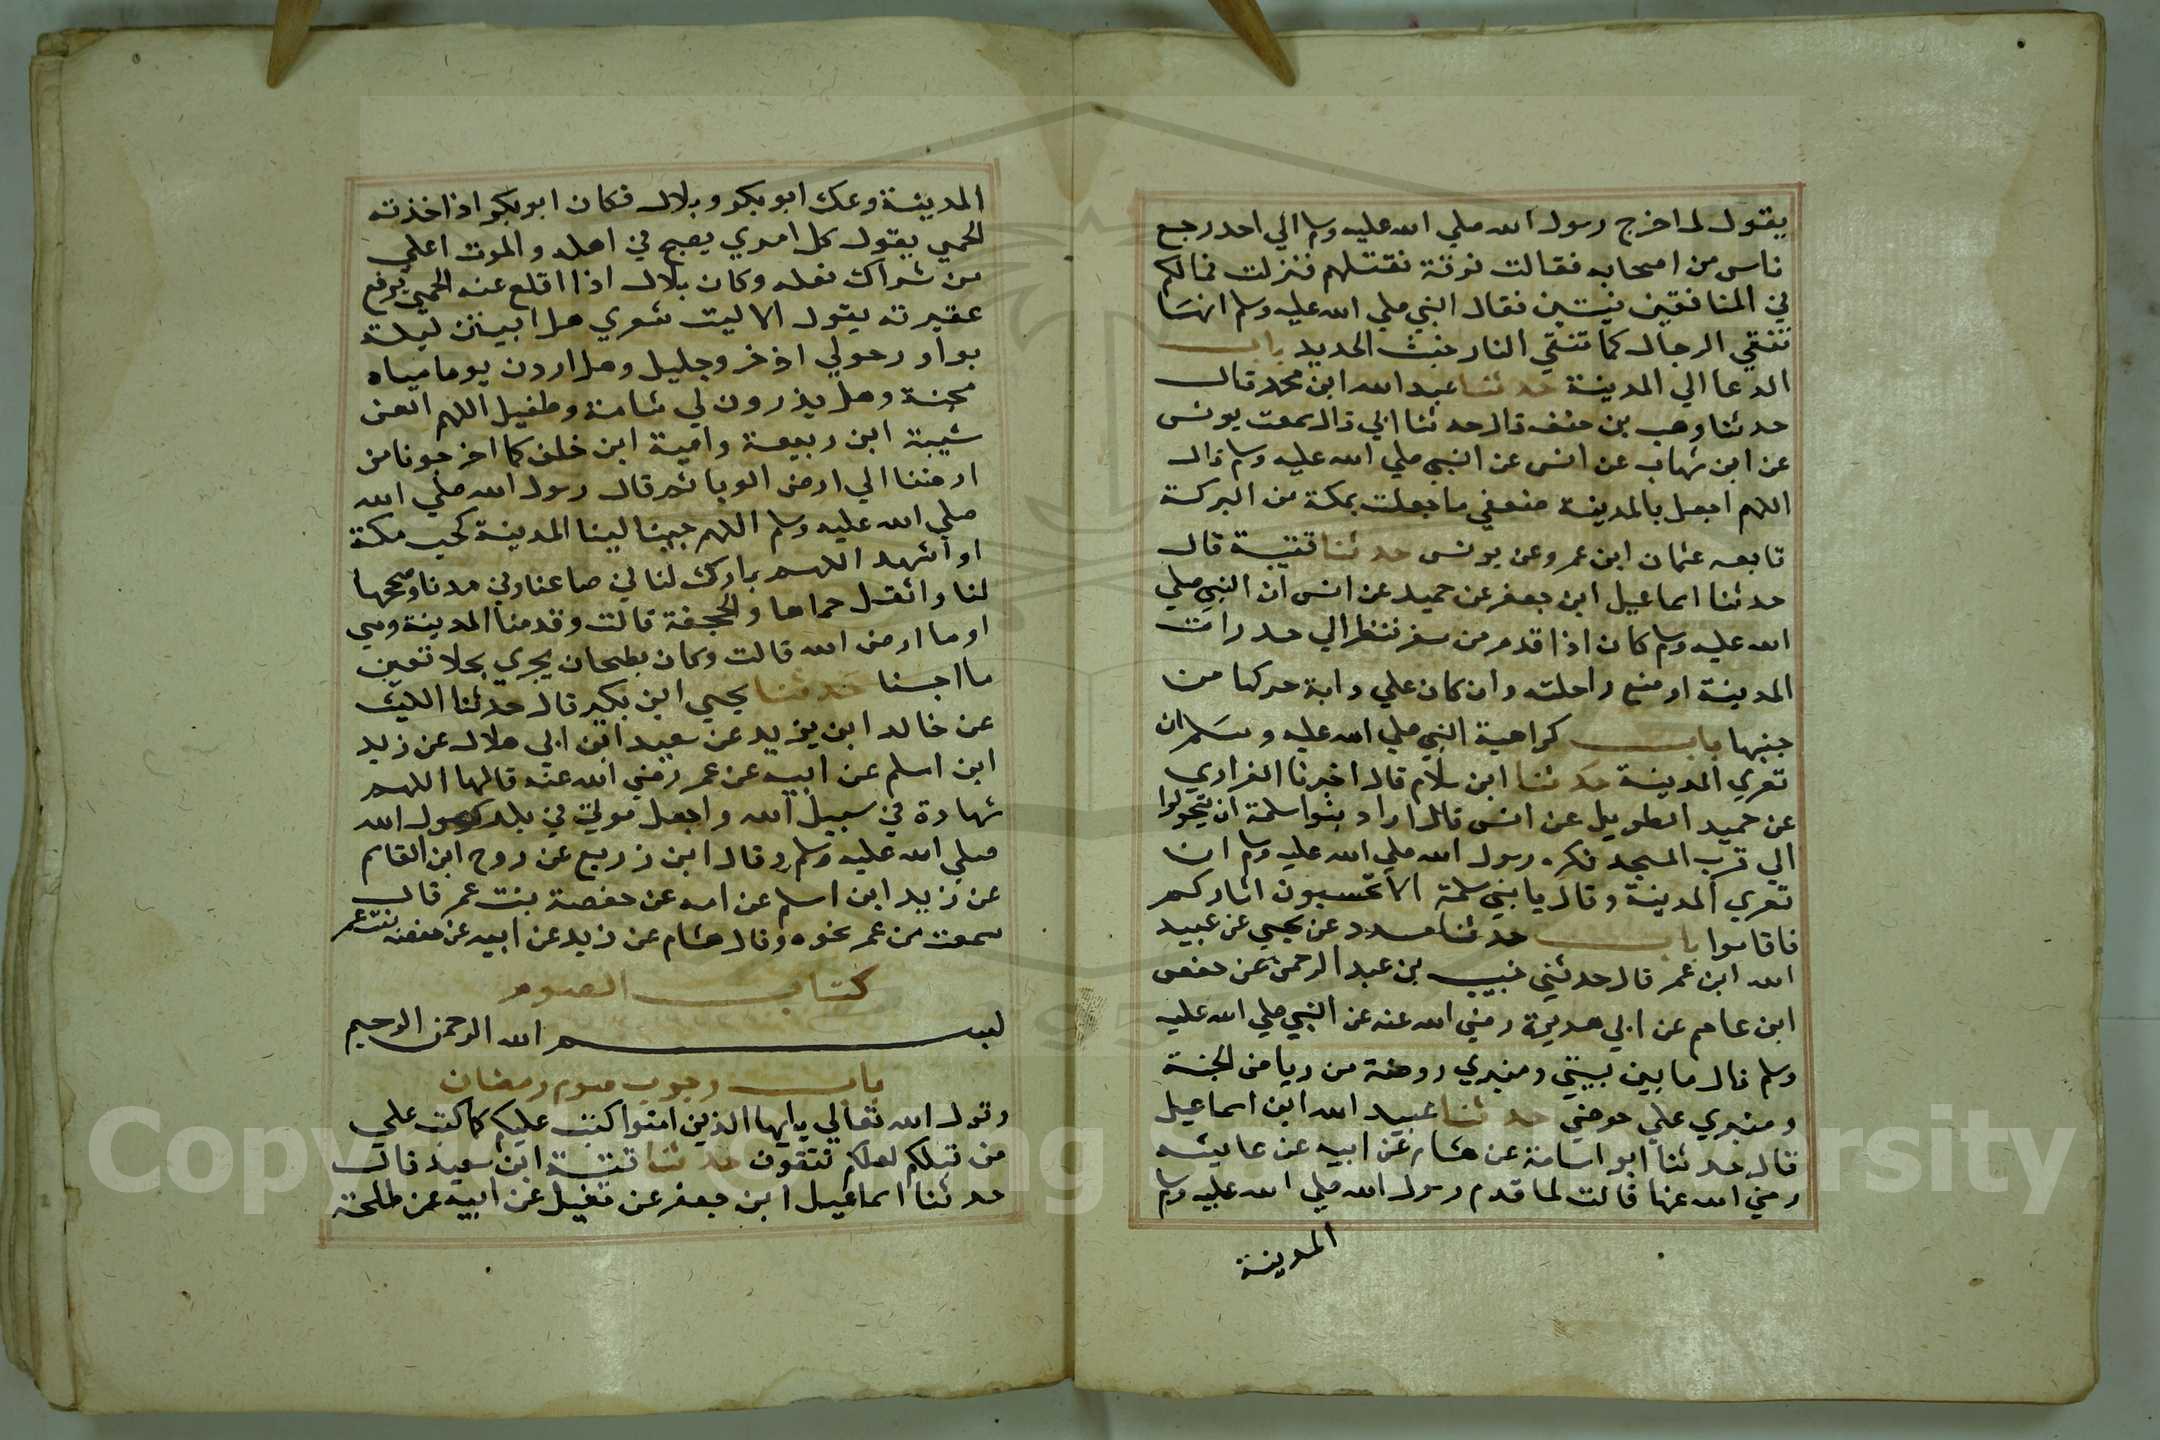 يقول لما خرج رسول الله صلي الله عليه وسلم الي احد رجع
ناس من اصحابه فقالت فرقة نقتلهم فنزلت فمالكم
في المنافقين فيتين فقال النبي صلي الله عليه وسلم انها
تنقي الرجال كما تنقي النار خبث الحديد باب
الدعا الي المدينة حدثنا عبد الله ابن محمد قال
حدثنا وهب بن قال حدثنا ابي قال سمعت يونس
عن ابن شهاب عن انس عن النبي صلي الله عليه وسلم قال
اللهم اجعل بالمدينة ضعفي ما جعلت بمكة من البركة
تابعه عثمان ابن عمر وعن يونس حدثنا قتيبة قال
حدثنا اسماعيل ابن جعفر عن حميد عن انس ان النبي صلي
الله عليه وسلم كان اذا قدم من سفر فنظر الي
المدينة اوضع راحلته وان كان علي دابة حركها من
جنبها باب كراهية النبي صلي الله عليه وسلم ان
تعري المدينة حدثنا ابن سلام قال اخبرنا الفزاري
عن حميد الطويل عن انس قال اراد بنوا سلمة ان يتحولوا
الي قرب المسجد فكره رسول الله صلي الله عليه وسلم ان
تعري المدينة وقال يا بني سلمة الا تحتسبون اثاركم
فاقاموا باب حدثنا مسدد عن يحيي عن عبيد
الله ابن عمر قال حدثني خبيب بن عبد الرحمن عن حفص
ابن عاصم عن ابي هريرة رضي الله عنه عن النبي صلي الله عليه
وسلم قال ما بين بيتي ومنبري روضة من رياض الجنة
ومنبري علي حوضي حدثنا عبيد الله ابن اسماعيل
قال حدثنا ابو اسامة عن هشام عن ابيه عن عايشه
رضي الله عنها قالت لما قدم رسول الله صلي الله عليه وسلم
المدينة
المدينة وعك ابو بكر وبلال فكان ابو بكر اذا اخذته
الحمي يقول كل امري يصبح في اهله والموت اعلي
من شراك نعله وكان بلال اذا اقلع عنه الحمي يرفع
عقيرته يقول الا ليت شعري هل ابيتن ليلة
بواد وحولي اذخر وجليل وهل اردن يوما مياه
مجنة وهل يذرون لي شامة وطفيل اللهم العن
شيبة ابن ربيعة وامية ابن خلف كما اخرجونا من
ارضنا الي ارض الوبا ثم قال رسول الله صلي الله
صلي الله عليه وسلم اللهم حببنا لينا المدينة كحب مكة
او اشهد اللهم بارك لنا في صاعنا وفي مدنا وصححها
لنا وانقل حماها والحجفة قالت وقدمنا المدينة وهي
اوما ارض الله قالت وكان بطحان يجري بجلا تعين
ما اجسنا حدثنا يحيي ابن بكير قال حدثنا الليث
عن خالد ابن يزيد عن سعيد ابن ابي هلال عن زيد
ابن اسلم عن ابيه عن عمر رضي الله عنه قالها اللهم
شهادة في سبيل الله واجعل موتي في بلد رسول الله
صلي الله عليه وسلم وقال ابن زريع عن روح ابن القاسم
عن زيد ابن اسلم عن امه عن حفصة بنت عمر قال
سمعت من عمر نحوه وقال هشام عن زيد عن ابيه عن حفصه بنت عمر
كتاب الصوم
بسم الله الرحمن الرحيم
باب وجوب صوم رمضان
وقول الله تعالي يا ايها الذين امنوا كتب عليكم كما كتب علي
من قبلكم لعلكم تتقون حدثنا قتيبة ابن سعيد قال
حدثنا اسماعيل ابن جعفر عن عن ابيه عن طلحة